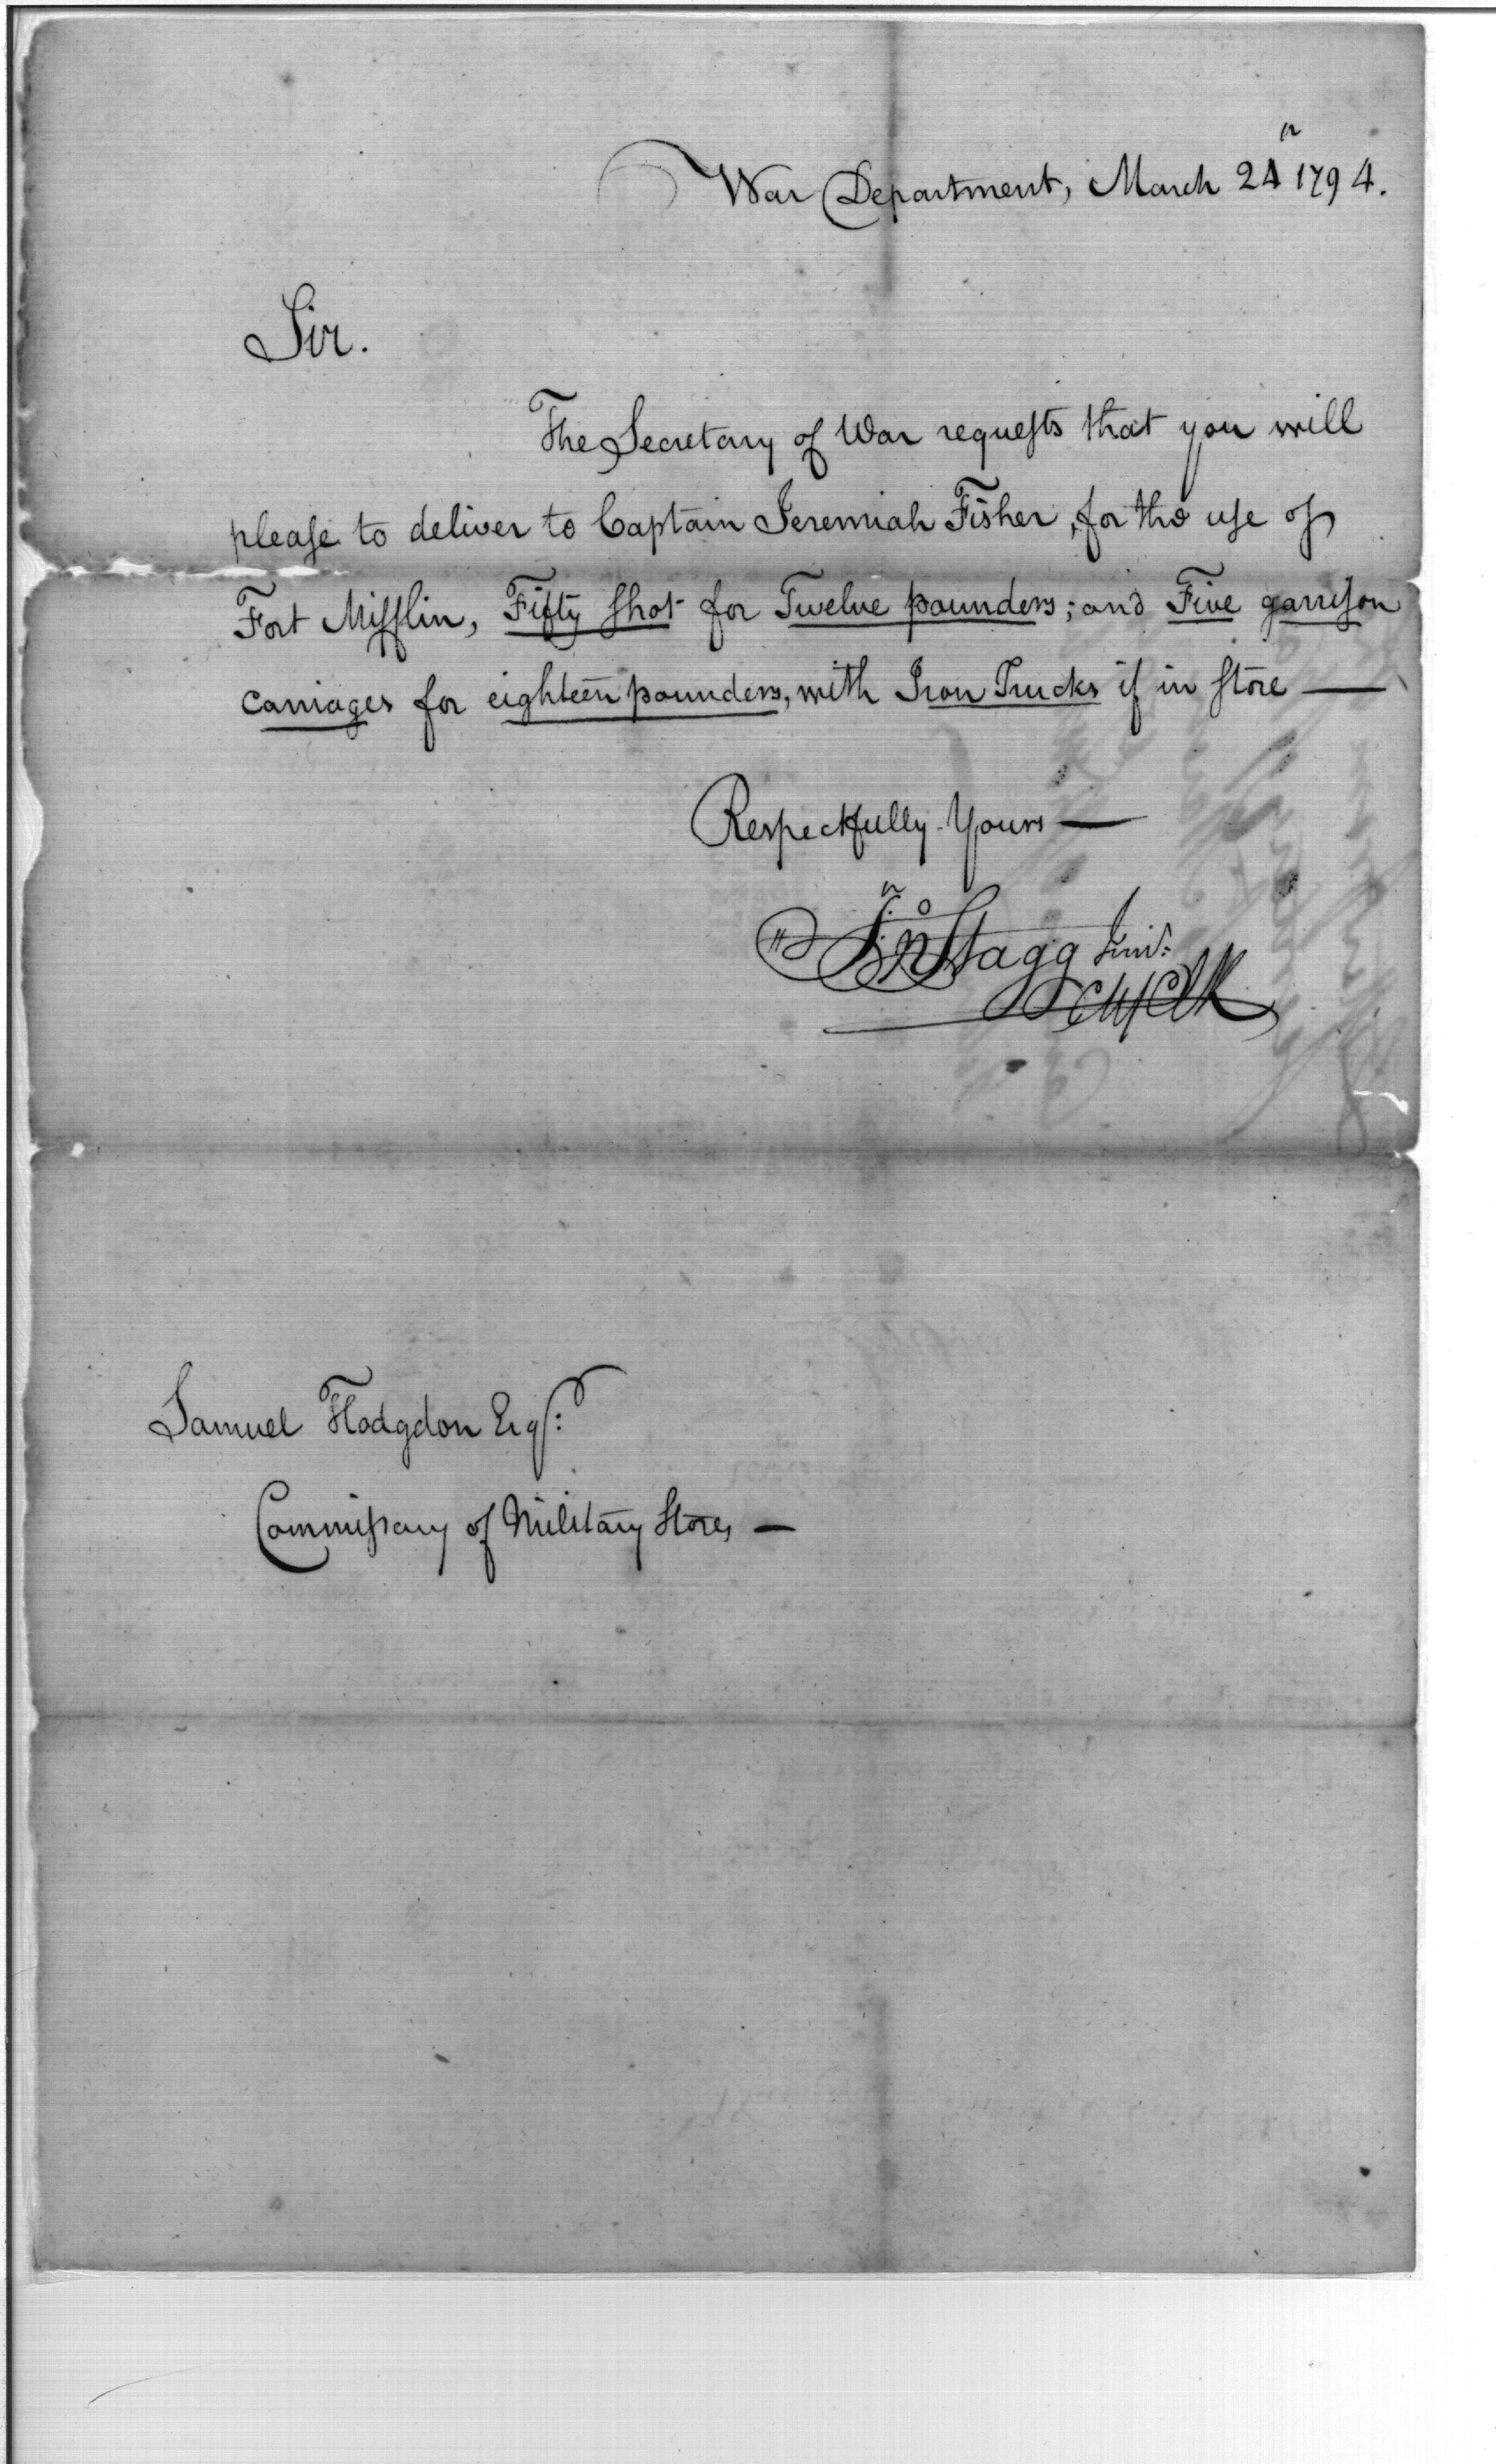 War Department, March 24 1794.
Sir.
The Secretary of War requests that you will
please to deliver to Captain Jeremiah Fisher, for the use of
Fort Mifflin, Fifty shot for Twelve pounders; and Five garrison
carriages for eighteen pounders, with Iron Trucks if in store —
Respectfully Yours —
Jno Stagg Junr:
Chf Clk
Samuel Hodgdon Esqr:
Commissary of Military Stores —